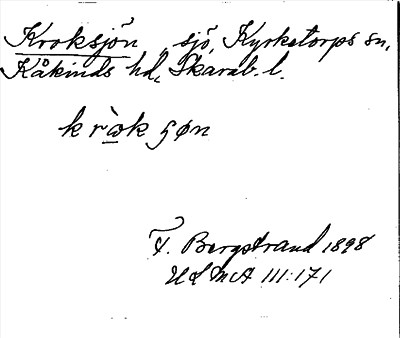 Kroksjön, sjö, Kyrketorps sn,
Kåkinds hd, Skarab. l.
kràkʂøn
F. Bergstrand 1898
ULMA 111:171